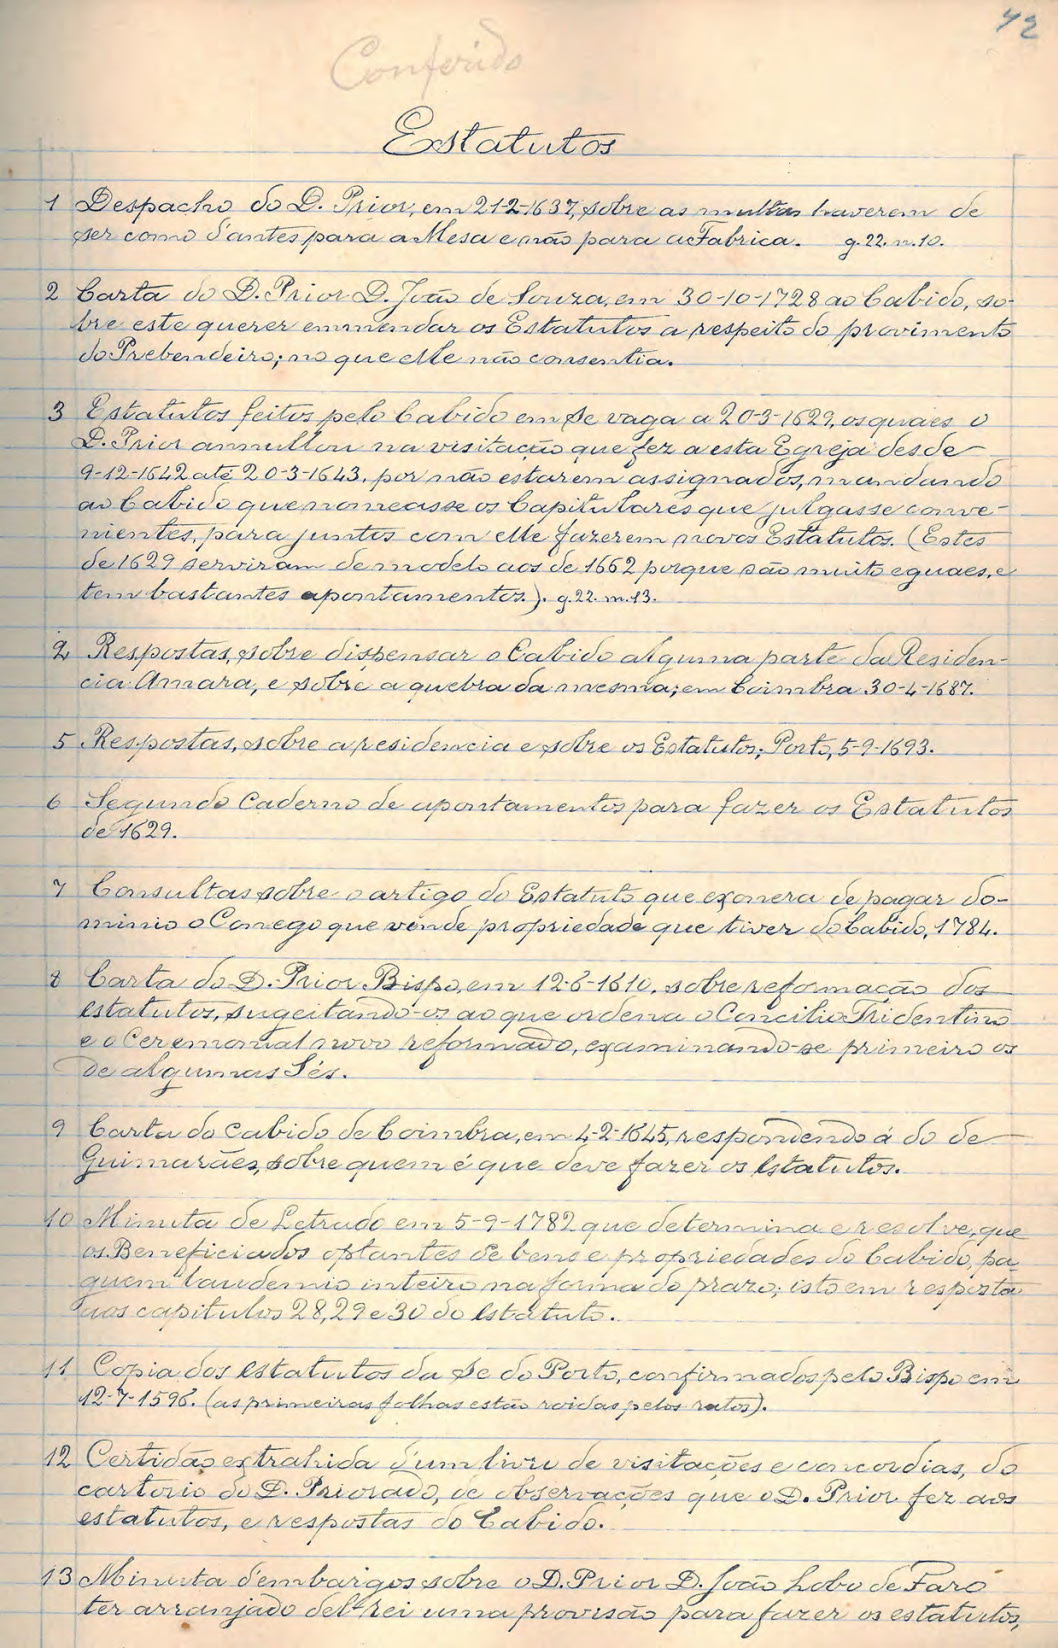 42
Conferido
Estatutos
1 Despacho do D. Prior, em 21-2-1637, sobre as multas haverem de
ser como d'antes para a Mesa e não para a Fabrica. g. 22. n. 10.
2 Carta do D. Prior D. João de Souza, em 30-10-1728 ao Cabido, so-
bre este querer emmendar os Estatutos a respeito do provimento
do Prebendeiro; no que elle não consentia.
3 Estatutos feitos pelo Cabido em Se vaga a 20-3-1629, os quaes o
D. Prior annullou na visitação que fez a esta Egreja desde
9-12-1642 até 20-3-1643, por não estarem assignados, mandando
ao Cabido que nomeasse os Capitulares que julgasse conve-
nientes, para juntos com elle fazerem novos Estatutos. (Estes
de 1629 serviram de modelo aos de 1662 porque são muito eguaes, e
tem bastantes apontamentos). g. 22. m. 13.
Respostas, sobre dispensar o Cabido alguma parte da Residen-
cia Amara, e sobre a quebra da mesma; em Coimbra 30-4-1687.
5 Respostas, sobre a residencia e sobre os Estatutos; Porto, 5-9-1693.
6 Segundo Caderno de apontamentos para fazer os Estatutos
de 1629.
7 Consultas sobre o artigo do Estatuto que exonera de pagar do-
minio o Conego que vende propriedade que tiver do Cabido, 1784.
8 Carta do D. Prior Bispo, em 12-6-1610, sobre reformação dos
estatutos, sugeitando-os ao que ordena o Concilio Tridentino
e o Ceremonial novo reformado, examinando-se primeiro os
de algumas Sés.
9 Carta do Cabido de Coimbra, em 4-2-1645, respondendo á do de
Guimarães, sobre quem é que deve fazer os Estatutos.
10 Minuta de Letrado em 5-9-1782 que determina e resolve, que
os Beneficiados optantes de bens e propriedades do Cabido, pa
guem laudemio inteiro na forma do prazo; isto em resposta
aos capitulos 28, 29 e 30 do Estatuto.
11 Copia dos Estatutos da Se do Porto, confirmados pelo Bispo em
12-7-1596. (as primeiras folhas estão roidas pelos ratos).
12 Certidão extrahida d'um livro de visitações e concordias, do
cartorio do D. Priorado, de observações que o D. Prior fez aos
estatutos, e respostas do Cabido.
13 Minuta d'embargos sobre o D. Prior D. João Lobo de Faro
ter arranjado del-rei uma provisão para fazer os estatutos,